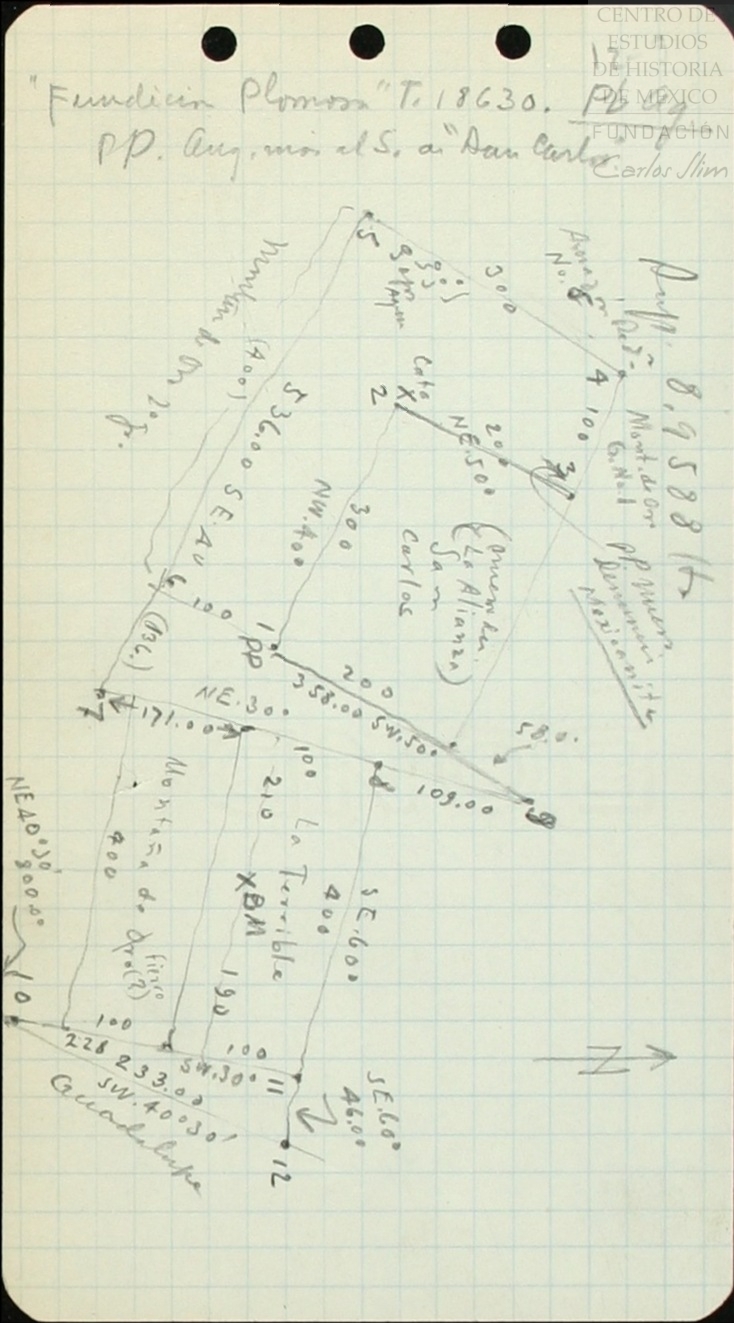 CENTRO DE
ESTUDIOS
DE HISTORIA
DE MÉXICO
FUNDACIÓN
Carlos Slim
12
"Fundicion Plomosa" T. 18630. Pb Ag
PP. Ang. mas al S. de "San Carlos"
5
300
4
Sup. 8,9588 Hs
100
Cata
X
2
200
NE.50°
3
PP
Mexicanita
Montaña de Oro 2a
(400)
536.00 SE.40
300
NW.400
(La Alianza)
San
Carlos
6
100
1
PP
200
358.00 SW.50°
(136.)
7
171.00
NE.30°
100
58.0.
8
109.00
9
Montaña de
fierro
Oro(?)
400
210
La Terrible
XBM
190
SE.60°
400
NE40°30'
800.00
10
100
228
233.00
SW.30°
100
11
SW.40°30'
Guadalupe
SE.60°
46.00
12
N